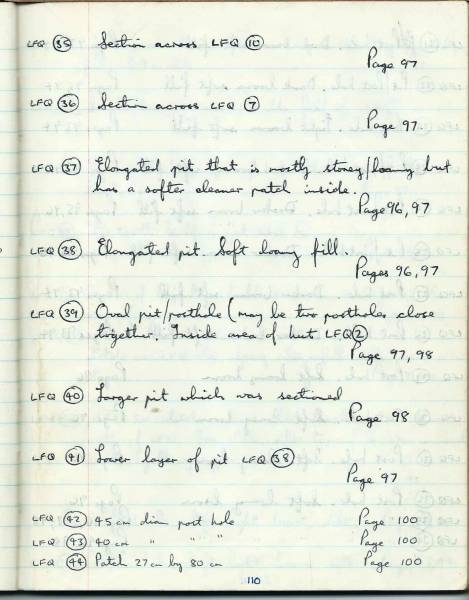 LFQ (35) Section across LFQ (10)
Page 97
LFQ (36) Section across LFQ (7)
Page 97
LFQ (37) Elongated pit that is mostly stoney/loamy but
has a softer cleaner patch inside.
Page 96, 97
LFQ (38) Elongated pit. Soft loamy fill.
Pages 96, 97
LFQ (39) Oval pit/posthole (may be two postholes close
together. Inside area of hut LFQ (2)
Page 97, 98
LFQ (40) Larger pit which was sectioned
Page 98
LFQ (41) Lower layer of pit LFQ (38)
Page 97
LFQ (42) 45 cm diam post hole Page 100
LFQ (43) 40 cm " " " Page 100
LFQ (44) Patch 27 cm by 80 cm Page 100
110